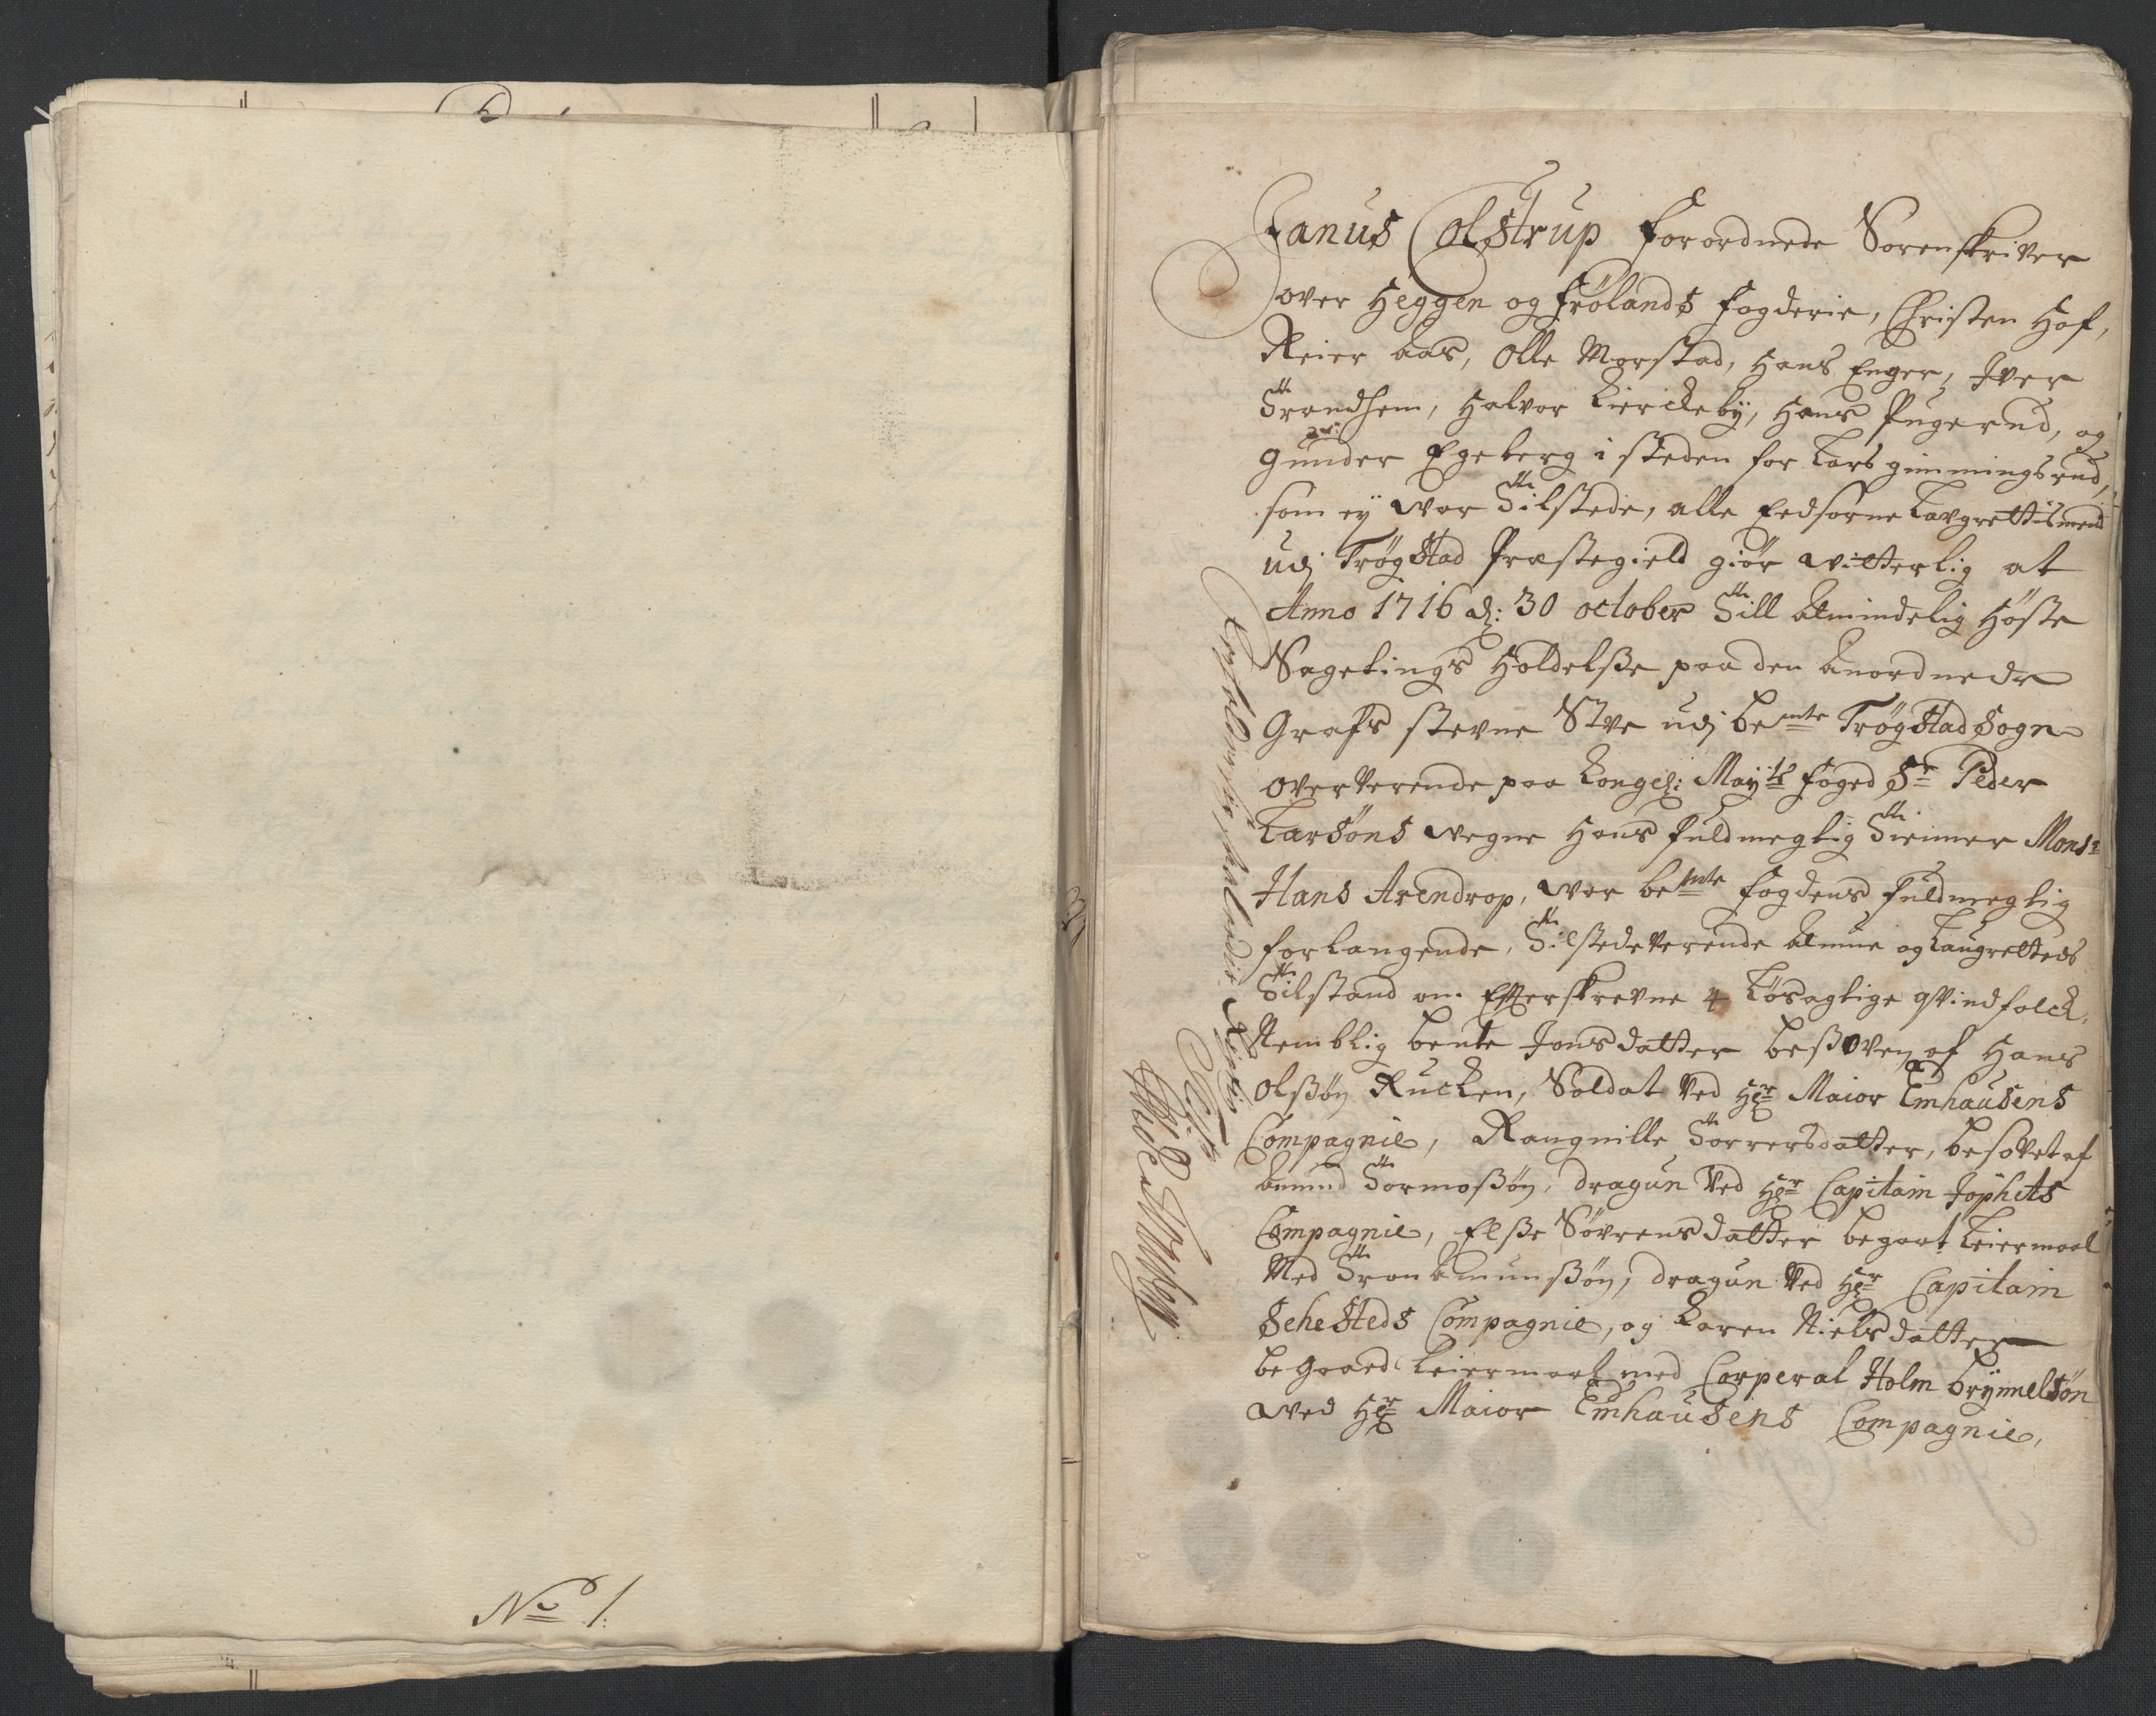 No 1.
Janus Colstrup forordnede Sorenskriver
over Heggen og Frølands fogderie, Christen Hof,
Reier Aas, Olle Morstad, Hans Enger, Iver
Trondhem, Halvor Kierckebÿ, Hans Pugerud, og
Gunder Egeberg i steden for Lars gimmingsrud,
som eÿ war Tilstede, alle Eedsorne Laugrettismend
udj Trøgstad Præstegield giør witterlig at
Anno 1716 d: 30 october Till Almindelig Høste
Sagetings Holdelsse paa den Anordnede
Grafs stevne Stue udj bemte Trøgstad Sogn
oververende paa Kongel: Maytz foged Sr Peder
Larsøns wegne Hans fuldmegtig Tienner Monsr
Hans Arendrop, war bemte fogdens fuldmegtig
forlangende, Tilstedeverende Almue og Laugrettes
Tilstand om Efterskrevne 4 Løsagtige qvindfolck,
Nemblig bente Jonsdatter besßoven af Hans
Olsßøn Rucken, Soldat ved Hr Maior Emhausens
Compagnie, Rangnille Torrersdatter, besovet af
Amund Tormosßøn, dragun ved Hr Capitain Jophets
Compagnie, Elsße Søvrensdatter begaat Leiermaal
Med Tron Amunsßøn, dragun ved Hr Capitain
Schesteds Compagnie, og Karen Nielsdatter
begaaed Leiermaal med Corperal Holm brÿnnelsøn
wed Hr Maior Emhausens Compagnie,